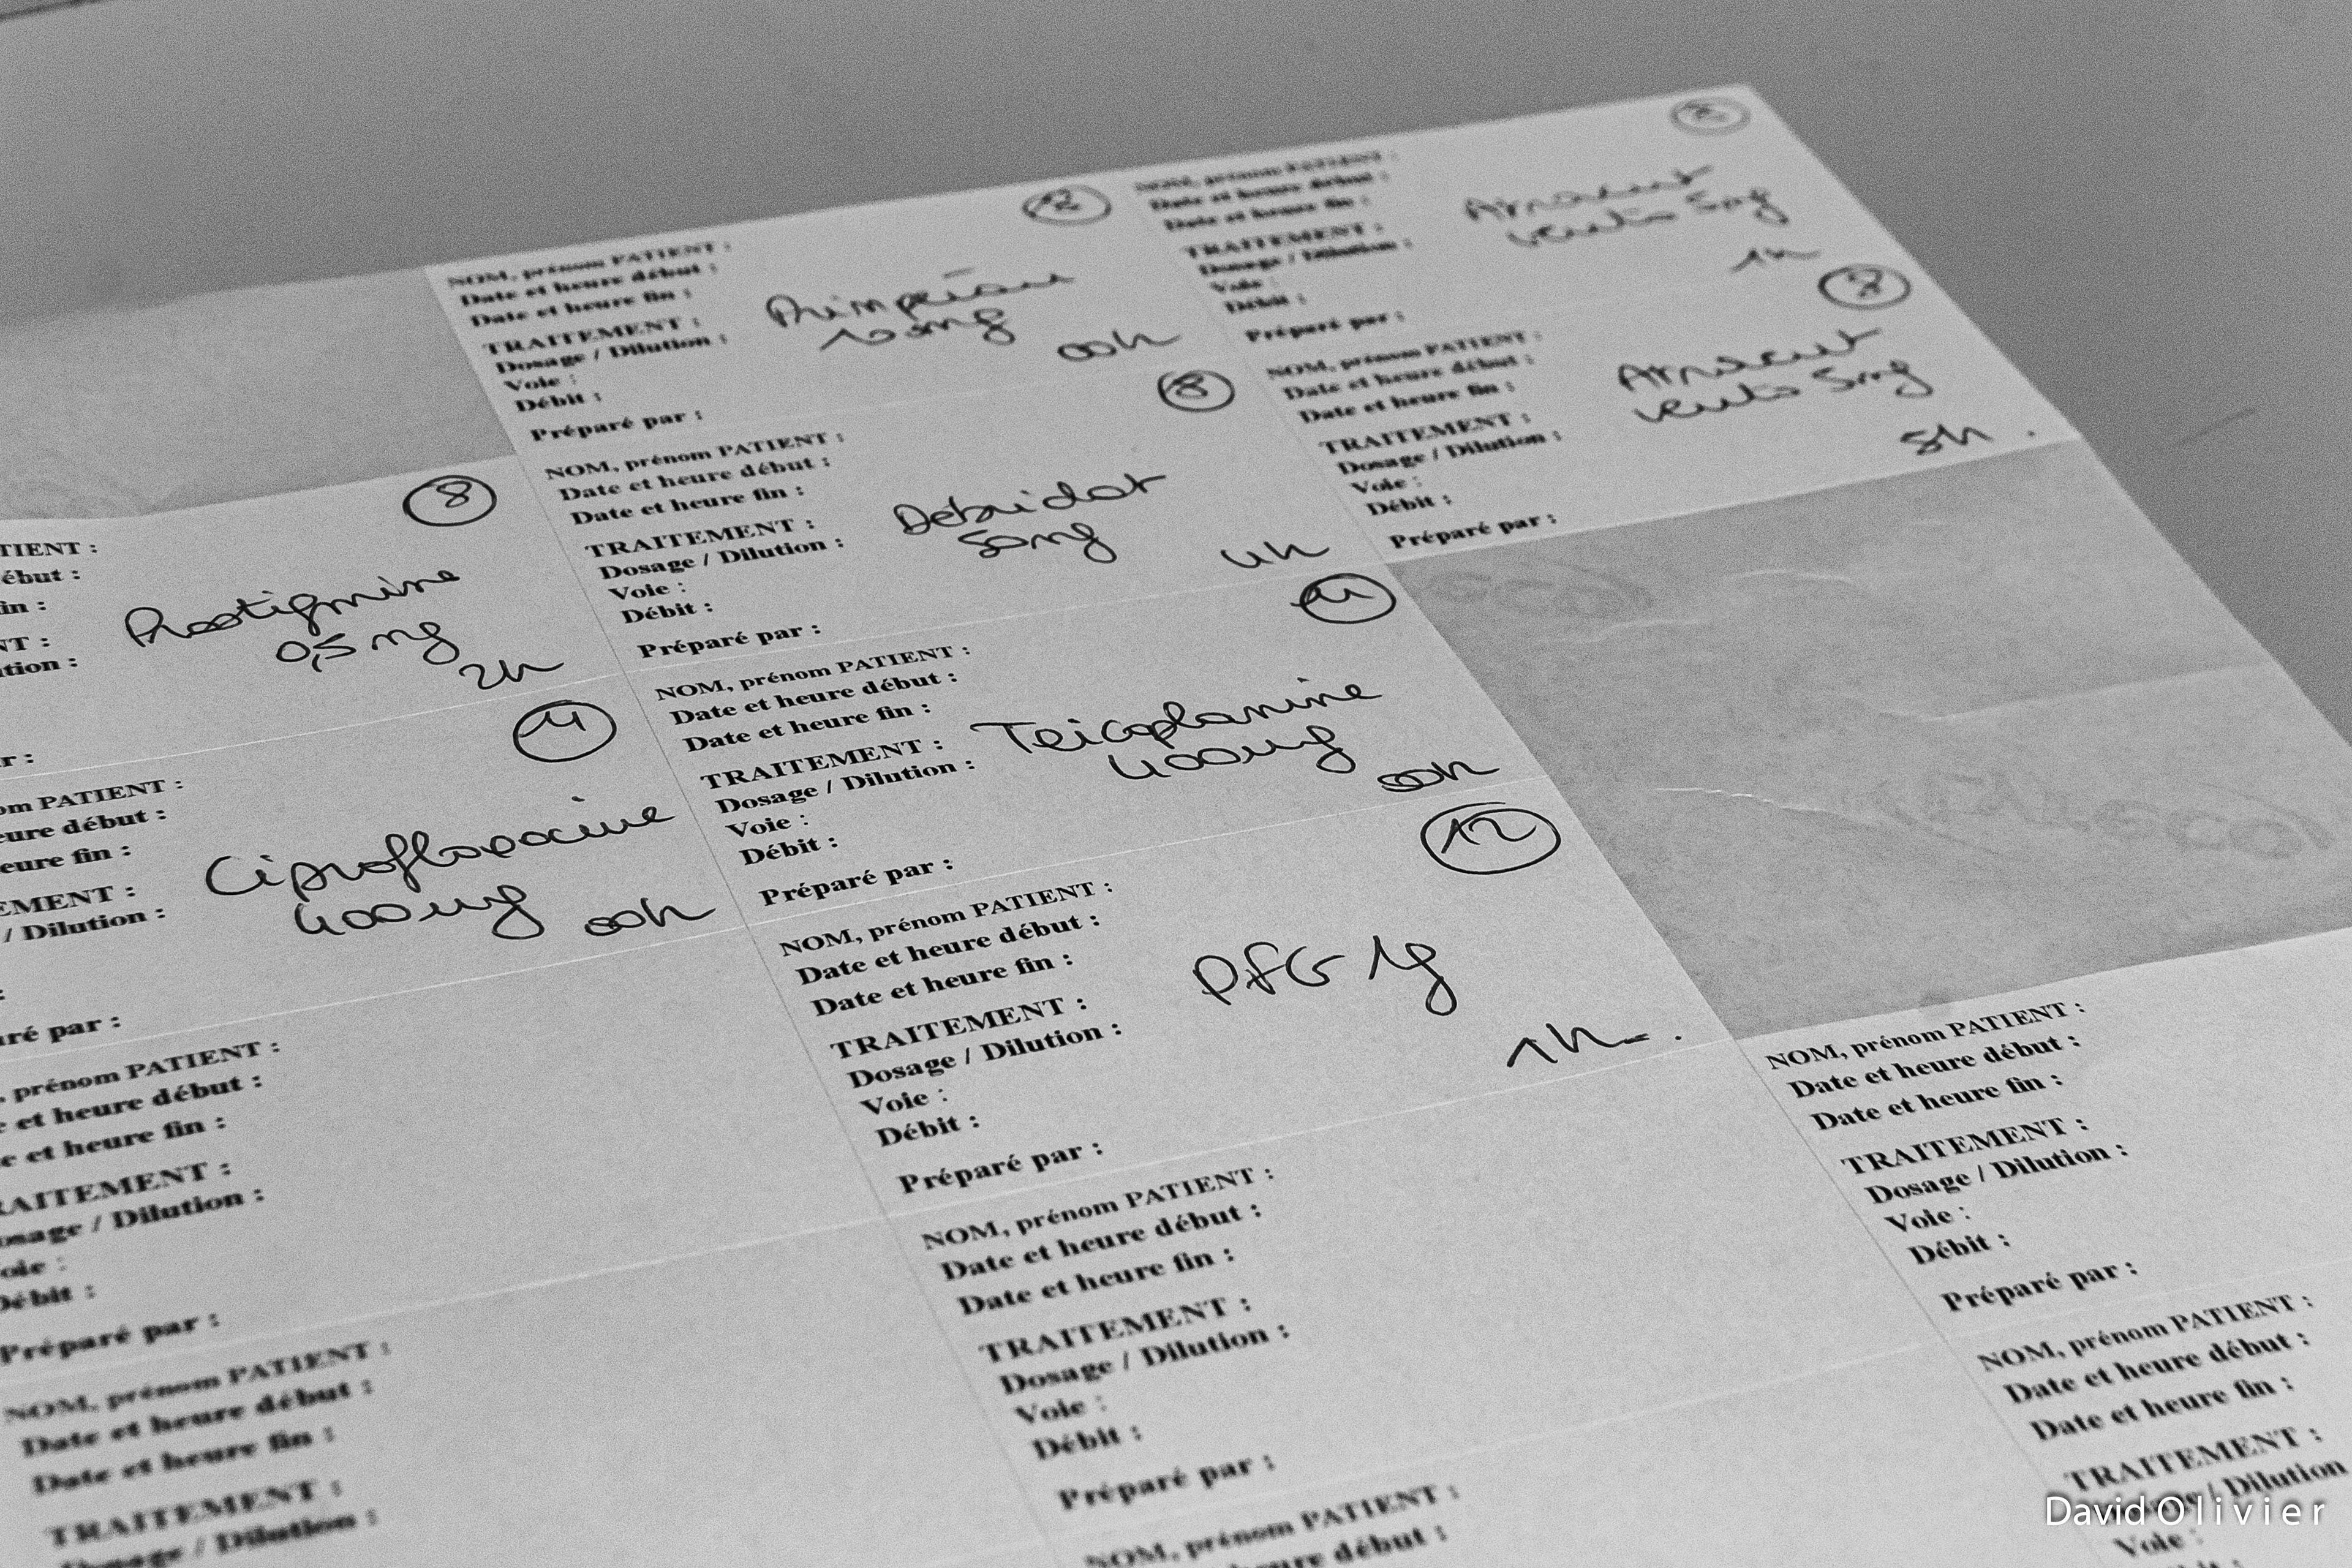 TIENT :
ébut :
in :
NT :
tion :
r :
8
Prostigmine
0,5 mg
2h
om PATIENT :
eure début :
eure fin :
EMENT :
/ Dilution :
:
ré par :
11
Ciprofloxacine
400mg 00h
, prénom PATIENT :
e et heure début :
e et heure fin :
RAITEMENT :
osage / Dilution :
oie :
Débit :
Préparé par :
NOM, prénom PATIENT :
Date et heure début :
Date et heure fin :
TRAITEMENT :
osage / Dilution :
NOM, prénom PATIENT :
Date et heure début :
Date et heure fin :
TRAITEMENT :
Dosage / Dilution :
Voie :
Débit :
Préparé par :
12
10mg
00h
NOM, prénom PATIENT :
Date et heure début :
Date et heure fin :
TRAITEMENT :
Dosage / Dilution :
Voie :
Débit :
Préparé par :
8
Debridat
50mg
4h
NOM, prénom PATIENT :
Date et heure début :
Date et heure fin :
TRAITEMENT :
Dosage / Dilution :
Voie :
Débit :
Préparé par :
11
Teicoplanine
400mg
00h
NOM, prénom PATIENT :
Date et heure début :
Date et heure fin :
TRAITEMENT :
Dosage / Dilution :
Voie :
Débit :
Préparé par :
12
PFG 1g
1h
NOM, prénom PATIENT :
Date et heure début :
Date et heure fin :
TRAITEMENT :
Dosage / Dilution :
Voie :
Débit :
Préparé par :
NOM, prénom PATIENT :
eure début :
NOM, prénom PATIENT :
Date et heure début :
Date et heure fin :
TRAITEMENT :
Dosage / Dilution :
Voie :
Débit :
Préparé par :
5mg
1h
NOM, prénom PATIENT :
Date et heure début :
Date et heure fin :
TRAITEMENT :
Dosage / Dilution :
Voie :
Débit :
Préparé par :
5mg
5h
NOM, prénom PATIENT :
Date et heure début :
Date et heure fin :
TRAITEMENT :
Dosage / Dilution :
Voie :
Débit :
Préparé par :
NOM, prénom PATIENT :
Date et heure début :
Date et heure fin :
TRAITEMENT :
/ Dilution
Voie :
David Olivier